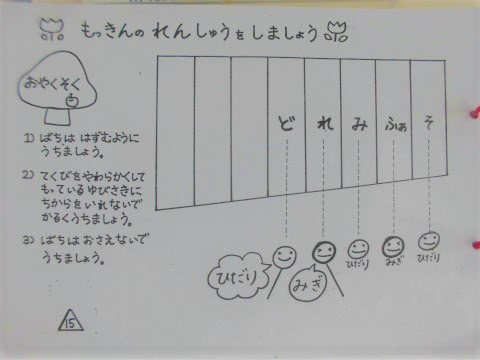 もっきんの れんしゅうを しましょう
おやくそく
1) ばちは はずむように
うちましょう。
2) てくびをやわらかくして
もっているゆびさきに
ちからをいれないで
かるくうちましょう。
3) ばちはおさえないで
うちましょう。
ど れ み ふぁ そ
ひだり みぎ ひだり みぎ ひだり
15